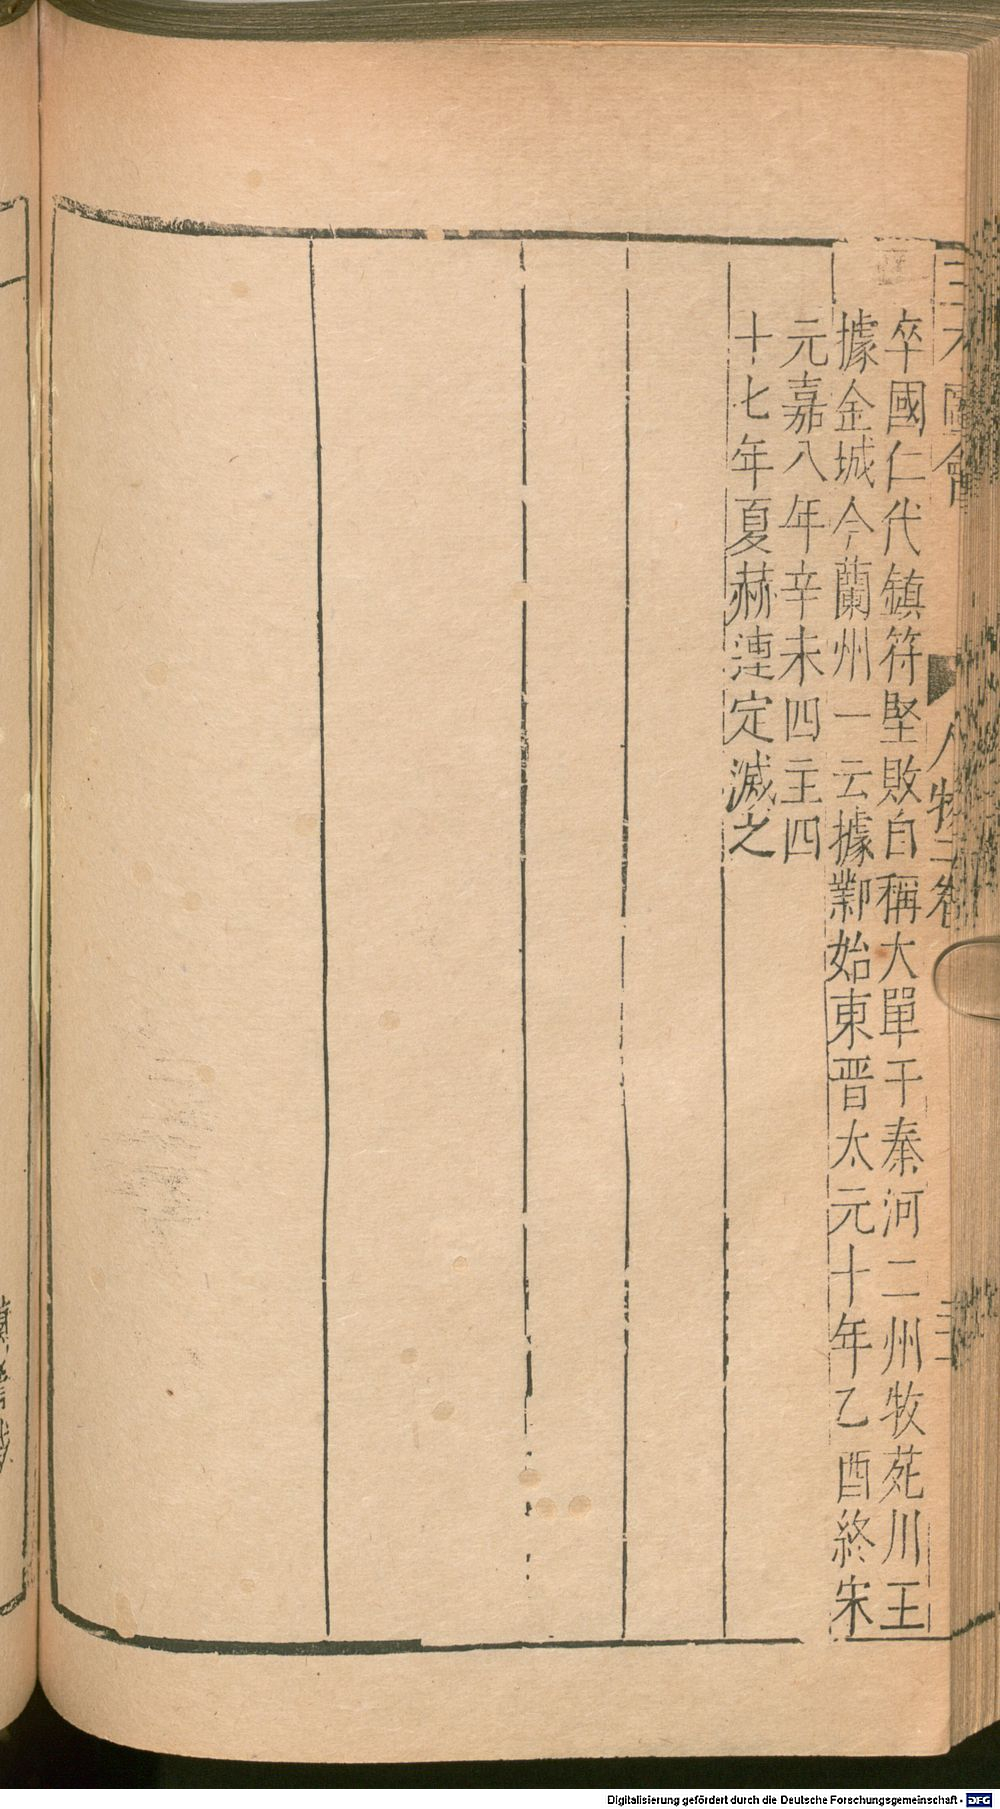 三才圖會 人物二卷
卒國仁代鎮符堅敗自稱大單于秦河二州牧苑川王
據金城今蘭州一云據鄴始東晋太元十年乙酉終宋
元嘉八年辛未四主四
十七年夏赫連定滅之
Digitalisierung gefördert durch die Deutsche Forschungsgemeinschaft - DFG